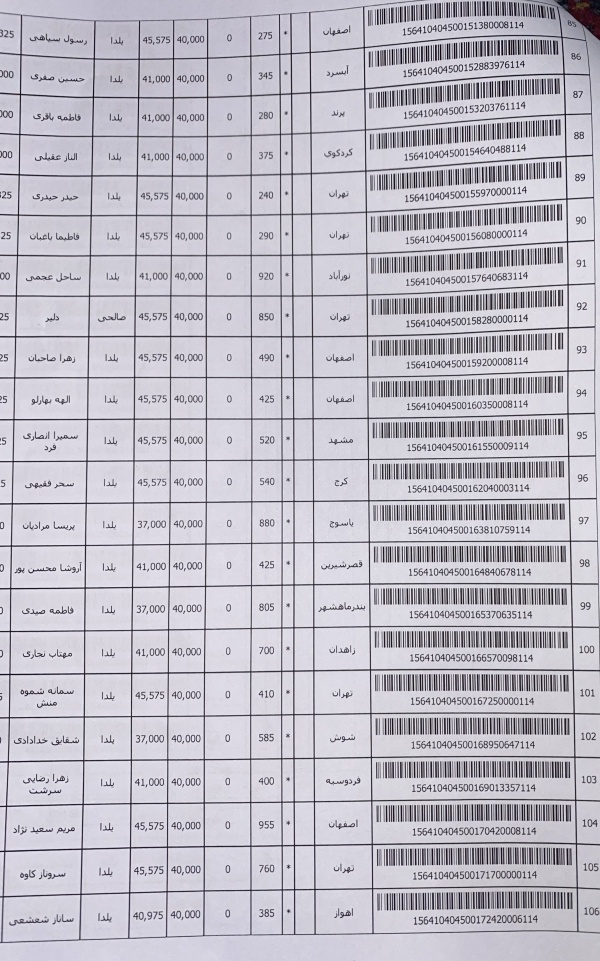 85 156410404500151380008114 اصفهان * 275 0 40,000 45,575 یلدا رسول سیاهی 325
86 156410404500152883976114 آبسرد * 345 0 40,000 41,000 یلدا حسین صفری 000
87 156410404500153203761114 پرند * 280 0 40,000 41,000 یلدا فاطمه باقری 000
88 156410404500154640488114 کردکوی * 375 0 40,000 41,000 یلدا الناز عقیلی 000
89 156410404500155970000114 تهران * 240 0 40,000 45,575 یلدا حیدر حیدری 325
90 156410404500156080000114 تهران * 290 0 40,000 45,575 یلدا فاطیما باغبان 25
91 156410404500157640683114 نورآباد * 920 0 40,000 41,000 یلدا ساحل عجمی 00
92 156410404500158280000114 تهران * 850 0 40,000 45,575 صالحی دلیر 25
93 156410404500159200008114 اصفهان * 490 0 40,000 45,575 یلدا زهرا صاحبان 25
94 156410404500160350008114 اصفهان * 425 0 40,000 45,575 یلدا الهه بهارلو 25
95 156410404500161550009114 مشهد * 520 0 40,000 45,575 یلدا سمیرا انصاری فرد 5
96 156410404500162040003114 کرج * 540 0 40,000 45,575 یلدا سحر فقیهی 5
97 156410404500163810759114 یاسوج * 880 0 40,000 37,000 یلدا پریسا مرادیان 0
98 156410404500164840678114 قصرشیرین * 425 0 40,000 41,000 یلدا آروشا محسن پور 0
99 156410404500165370635114 بندرماهشهر * 805 0 40,000 37,000 یلدا فاطمه صیدی 0
100 156410404500166570098114 زاهدان * 700 0 40,000 41,000 یلدا مهتاب نجاری 0
101 156410404500167250000114 تهران * 410 0 40,000 45,575 یلدا سمانه شموه منش
102 156410404500168950647114 شوش * 585 0 40,000 37,000 یلدا شقایق خدادادی
103 156410404500169013357114 فردوسیه * 400 0 40,000 41,000 یلدا زهرا رضایی سرشت
104 156410404500170420008114 اصفهان * 955 0 40,000 45,575 یلدا مریم سعید نژاد
105 156410404500171700000114 تهران * 760 0 40,000 45,575 یلدا سروناز کاوه
106 156410404500172420006114 اهواز * 385 0 40,000 40,975 یلدا ساناز شعشعی